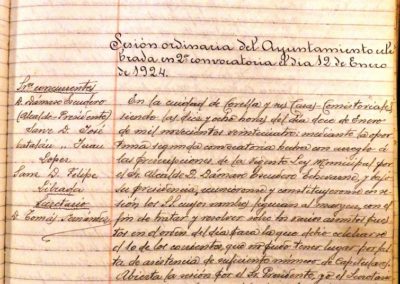 Sesión ordinaria del Ayuntamiento cele
brada en 2ª convocatoria el día 12 de Enero
de 1924.
Sres concurrentes
D. Dámaso Escudero
(Alcalde-Presidente)
José
Juan
López
Felipe
Librada
Secretario
D. Tomás
En la ciudad de Corella y su Casa Consistorial,
siendo las diez y ocho horas del día doce de Enero
de mil novecientos veinticuatro, mediante la opor
tuna segunda convocatoria hecha con arreglo á
las prescripciones de la vigente Ley Municipal por
el Sr. Alcalde D. Dámaso Escudero y bajo
su presidencia, se reunieron y constituyeron en se
sión los Sres cuyos nombres figuran al margen con el
fin de tratar y resolver sobre los varios asuntos pues
tos en el orden del día para la que debió celebrarse
el de los corrientes que no pudo tener lugar por fal
ta de asistencia de suficiente número de Capitulares.
Abierta la sesión por el Sr. Presidente, yo el Secretario